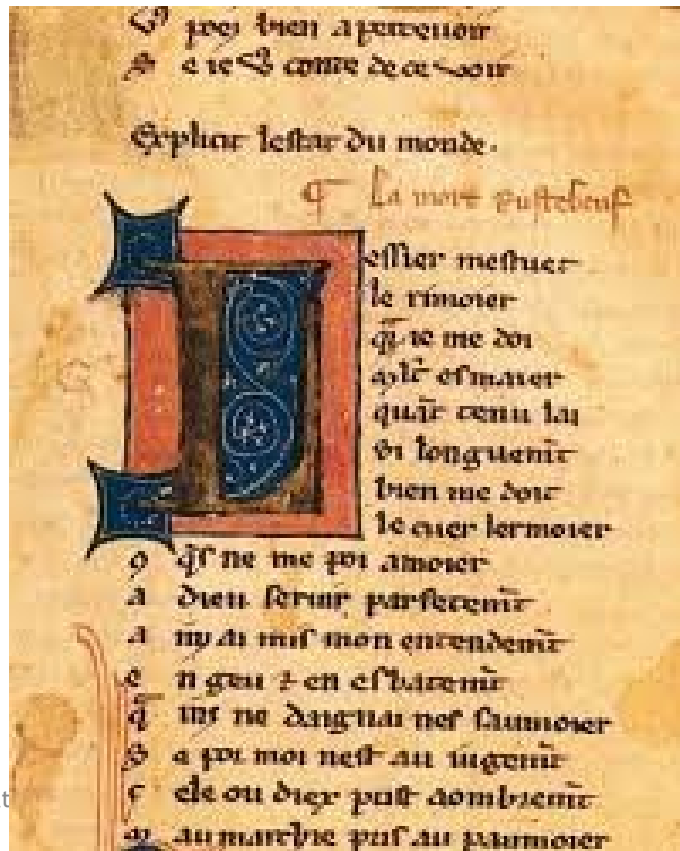 poez bien apercevoir
S e ie conte de ce voir
Explicit lestat du monde.
¶ La mort rustebeuf
L essier mestuet
le rimoier
q̄r ie me doi
mlt esmaier
quāt tenu lai
si longuemt̄
bien me doit
le cuer lermoier
o q̄s ne me poi amoier
a dieu servir parfetemt̄
A inz ai mis mon entendemt̄
e n geu ⁊ en esbatemt̄
q̄ ins ne daignai nes saumoier
S e por moi nest au iugemt̄
c ele ou diex prist aombremt̄
m au marchie pris au paumoier